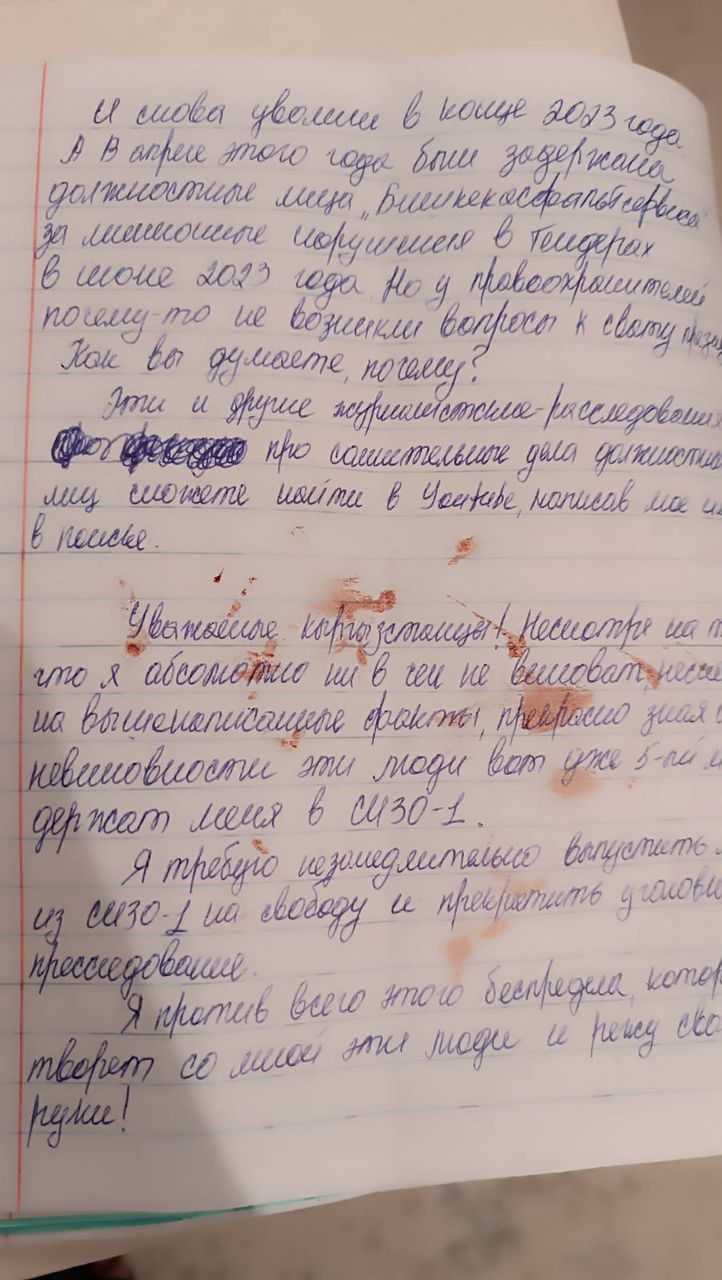 И снова уволили в конце 2023 года
А В апреле этого года были задержаны
должностные лица „Бишкекасфальтсервиса"
за миллионные нарушения в тендерах
в июне 2023 года. Но у правоохранителей
почему-то не возникли вопросы к свату
Как вы думаете, почему?
Эти и другие журналистские-расследования
про сомнительные дела должностны
лиц сможете найти в Youtube, написав мое
в поиске.
Уважаемые кыргызстанцы! Несмотря на т
что я абсолютно ни в чем не виноват,
на вышенаписанные факты, прекрасно зная
невиновности эти люди вот уже 5-ый м
держат меня в СИЗО-1.
Я требую незамедлительно выпустить
из СИЗО-1 на свободу и прекратить уголовн
пресследование.
Я против всего этого беспредела, котор
творят со мной эти люди и режу сво
руки!